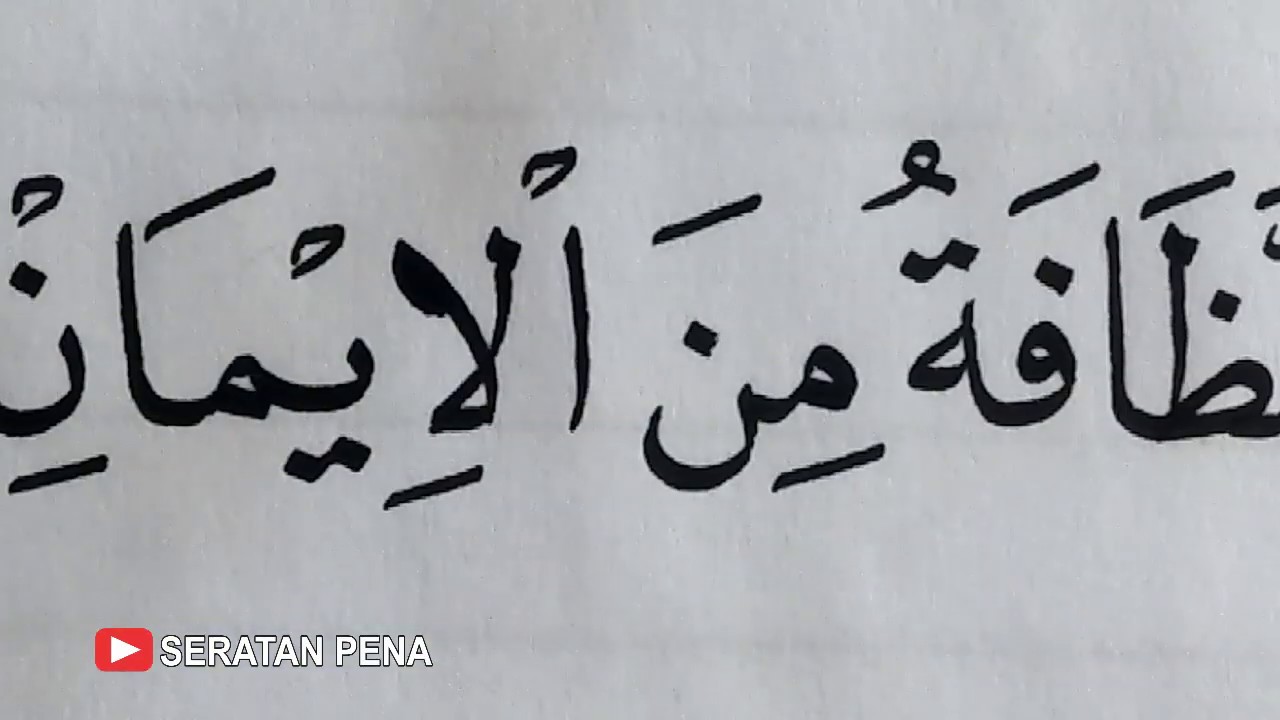 نَّظَافَةُ مِنَ الْاِيْمَانِْ
SERATAN PENA